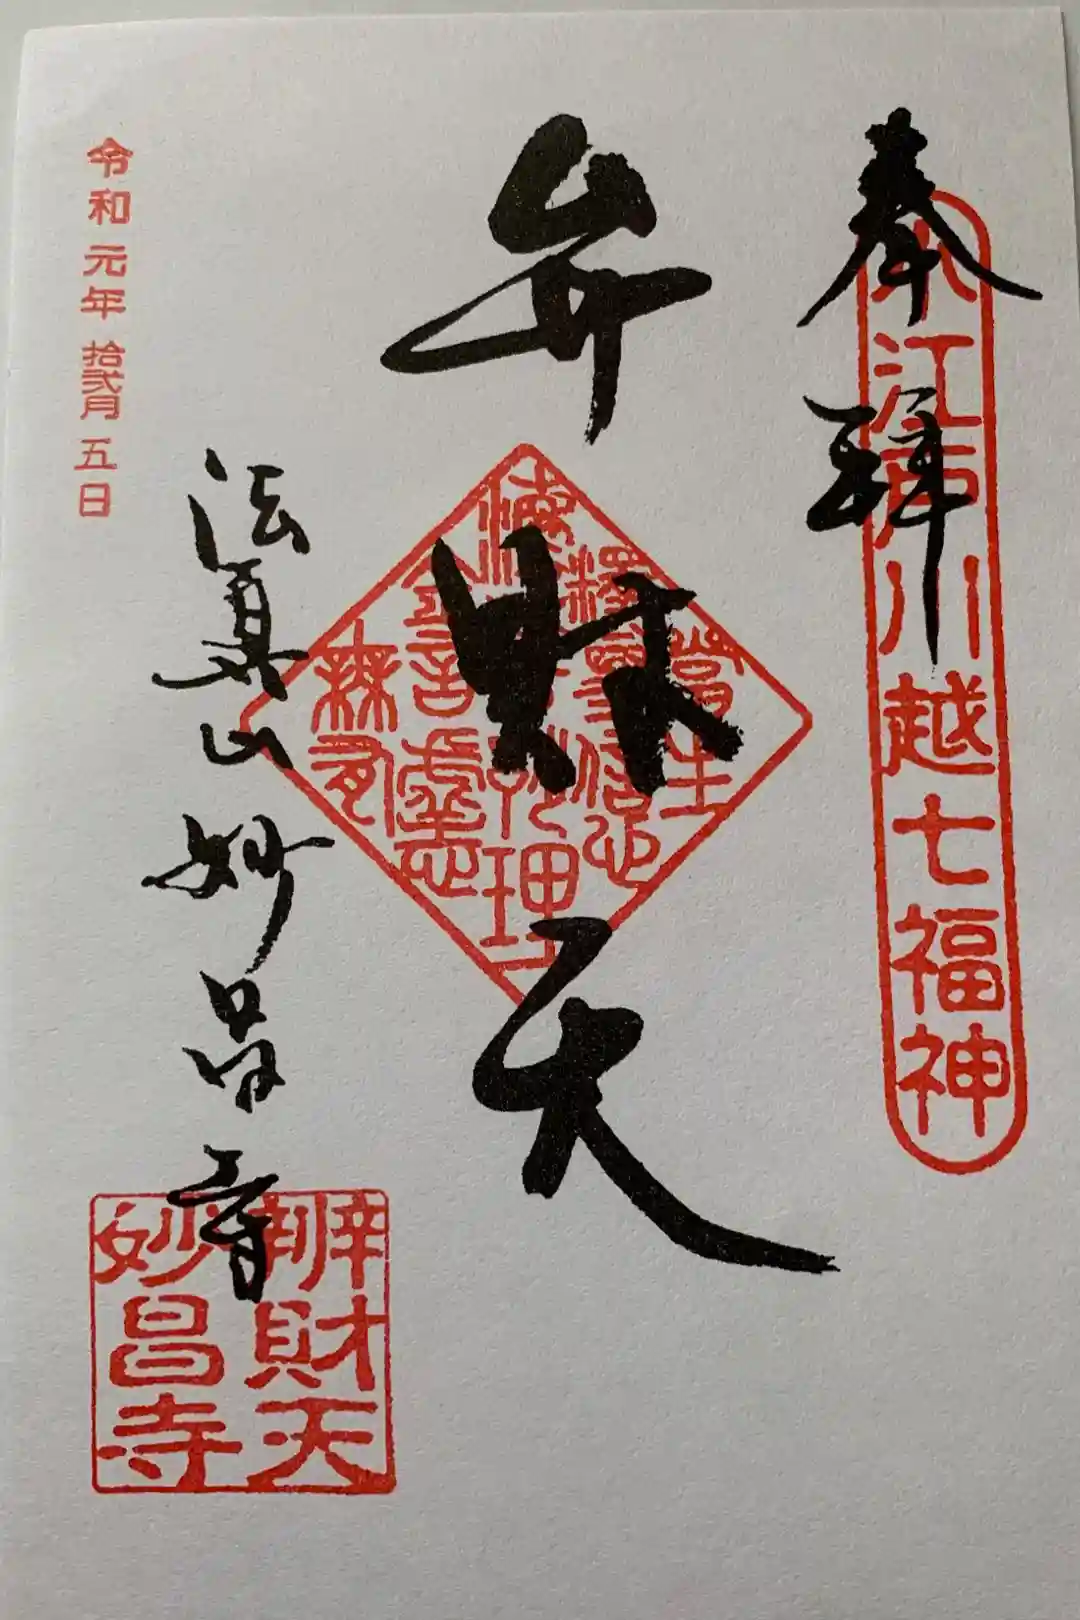 奉拝
小江戸川越七福神
弁財天
法眞山妙昌寺
令和元年拾弐月五日
辨財天
妙昌寺